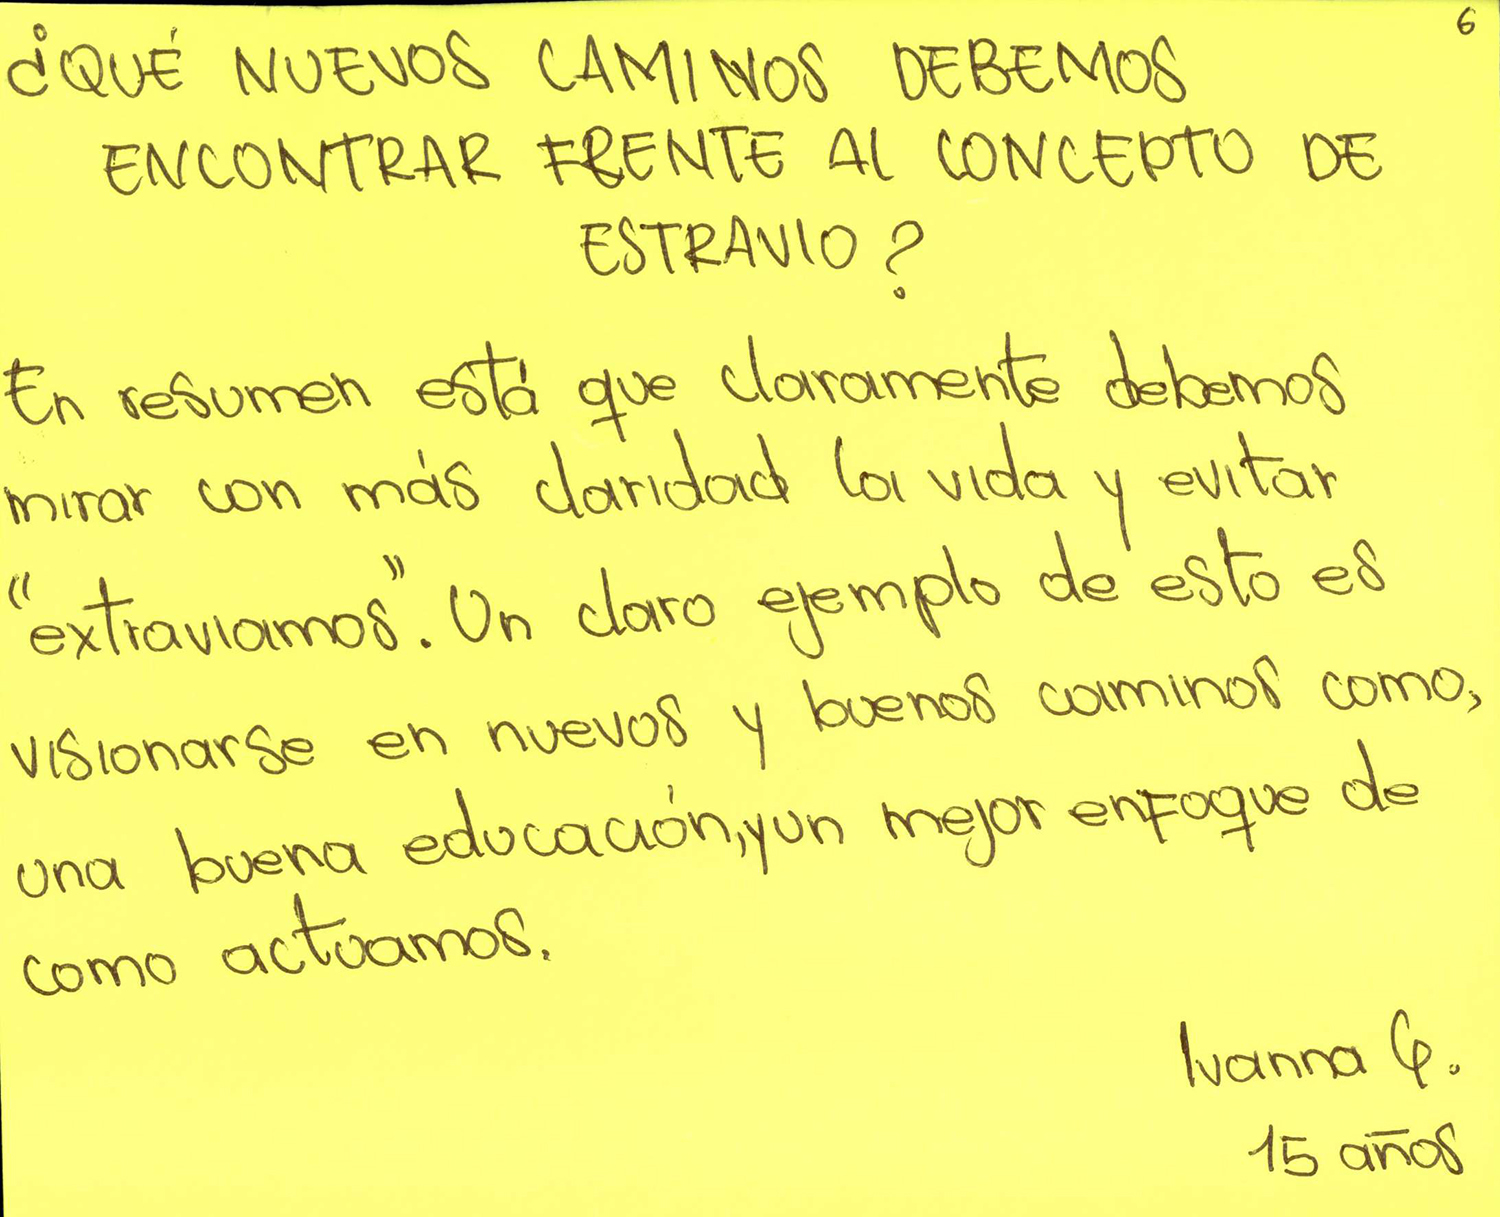 6
¿QUÉ NUEVOS CAMINOS DEBEMOS
ENCONTRAR FRENTE AL CONCEPTO DE
ESTRAVIO?
En resumen está que claramente debemos
mirar con más claridad la vida y evitar
"extraviarnos". Un claro ejemplo de esto es
visionarse en nuevos y buenos caminos como,
una buena educación, y un mejor enfoque de
como actuamos.
Ivanna G.
15 años